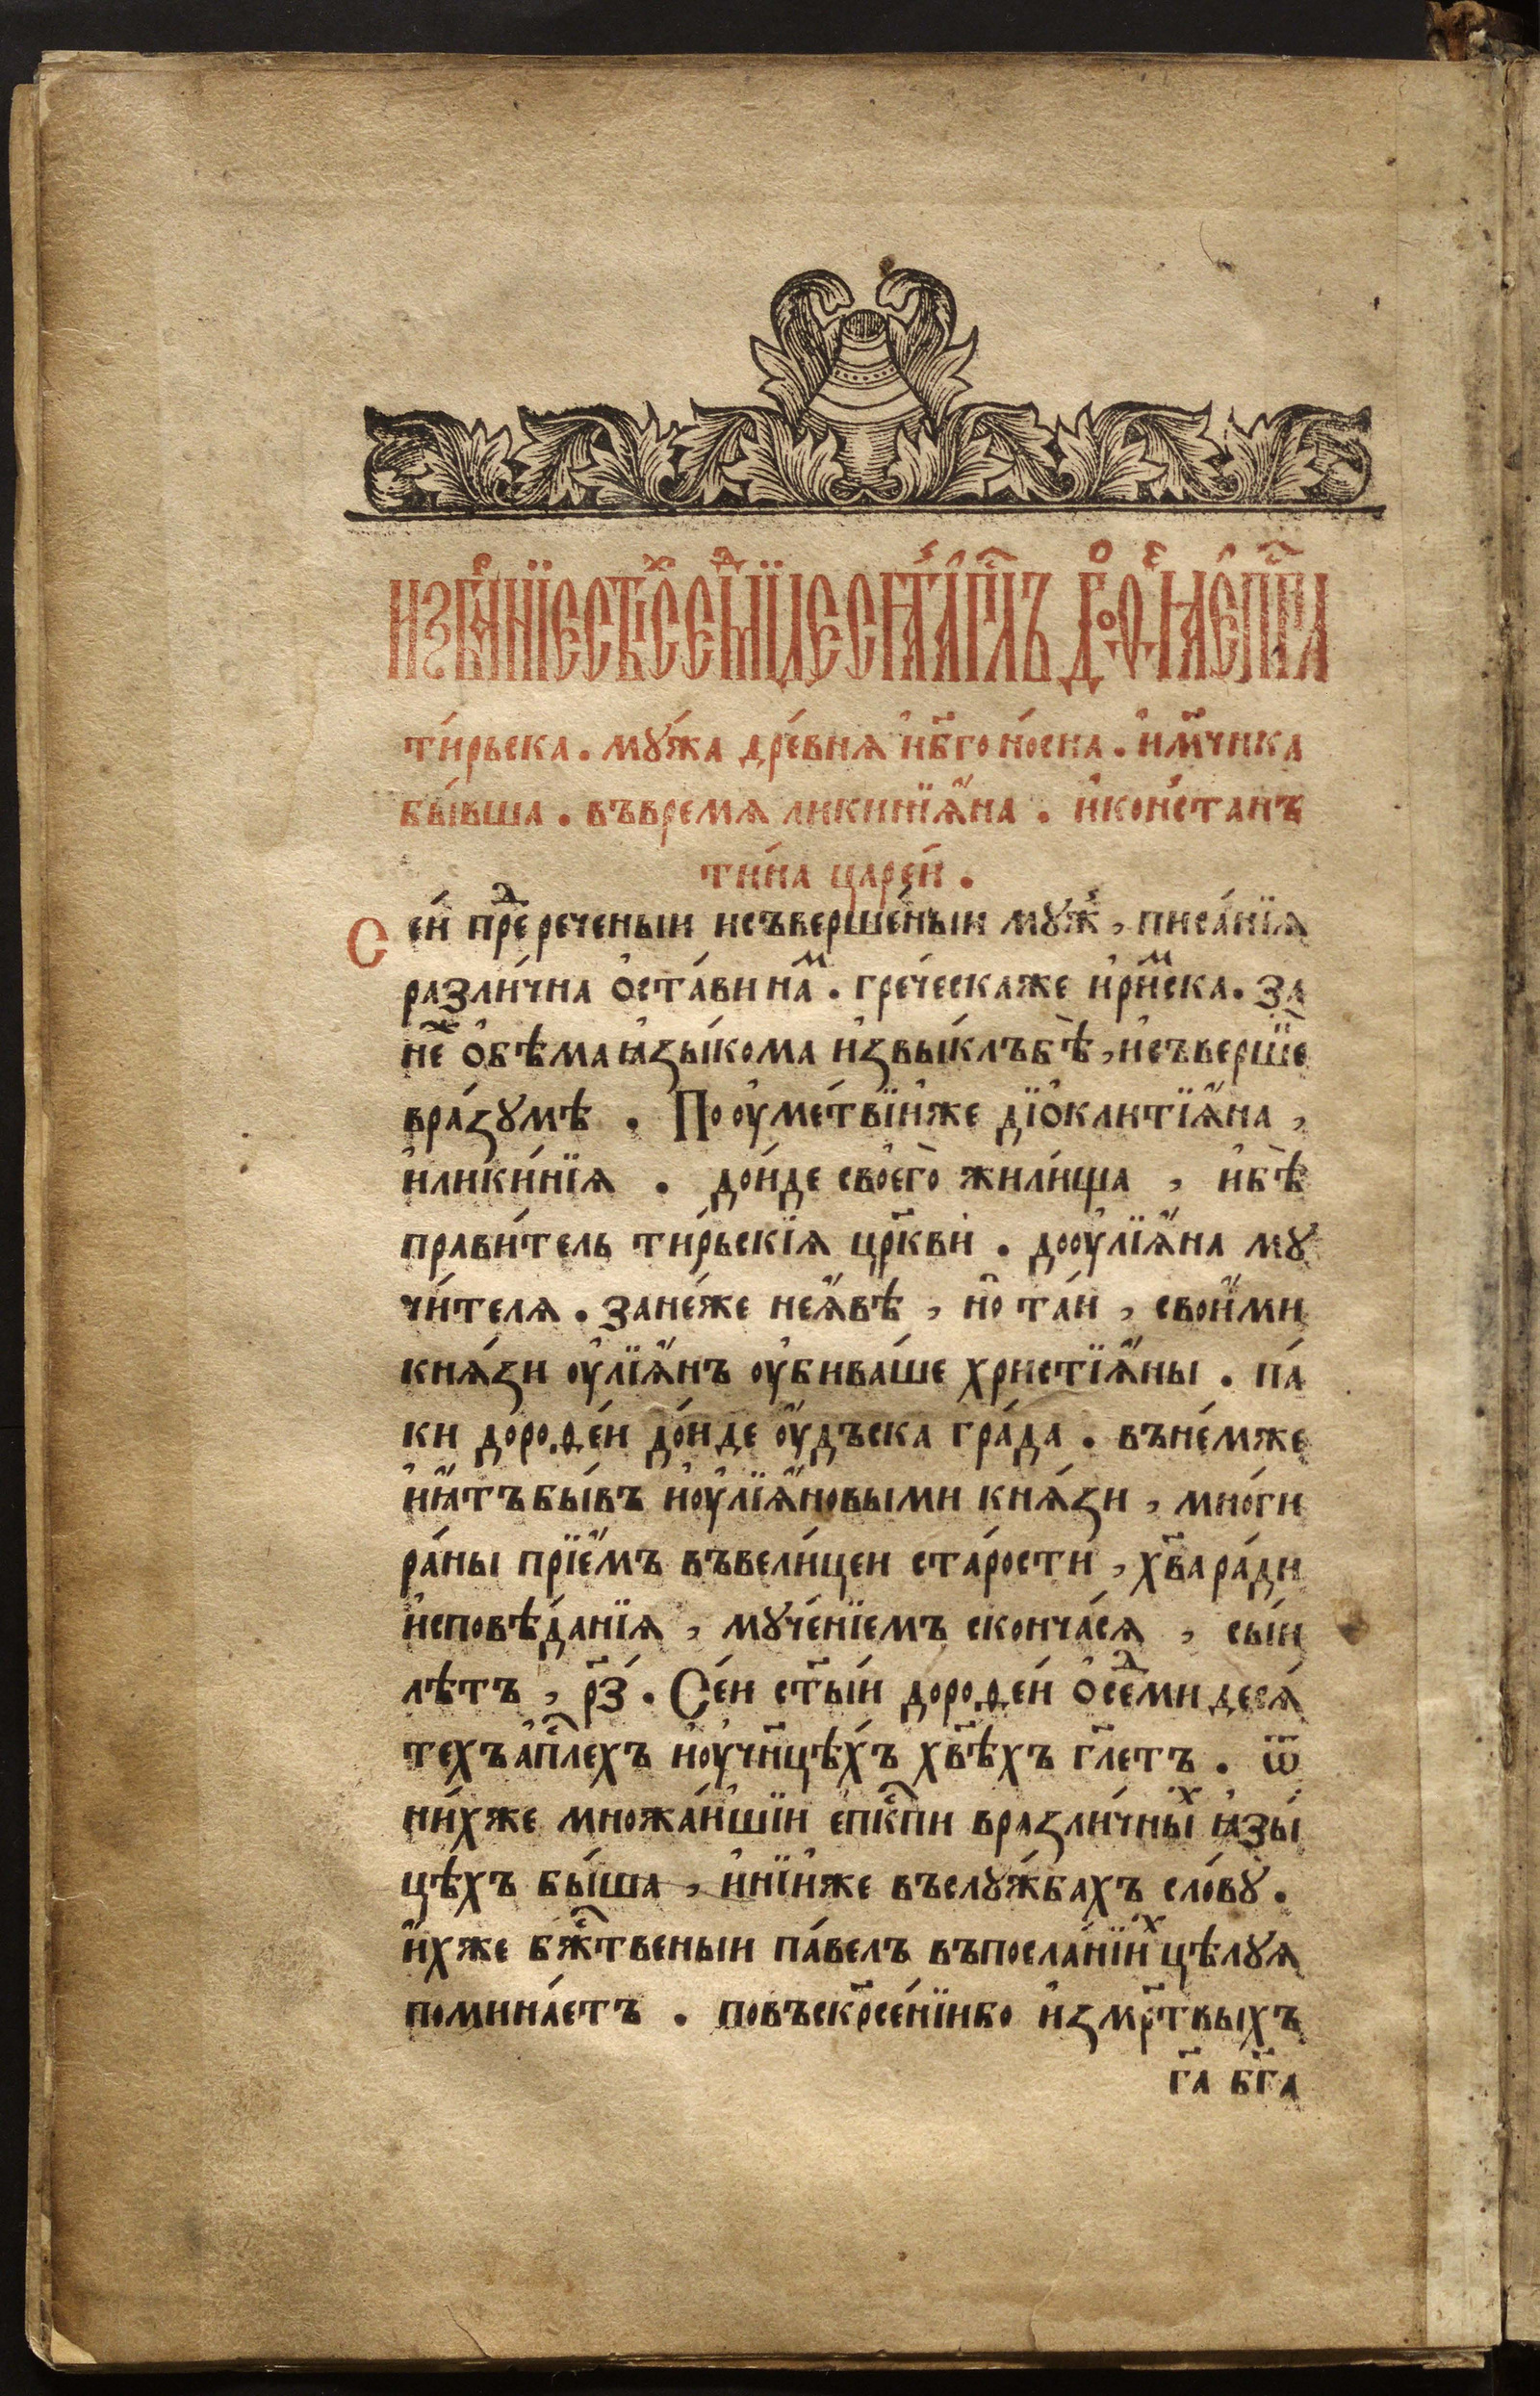 и҆збра́нїе ст҃ы́хъ се́дмидесѧ́тъ а҆пⷭ҇лъ дороѳе́ѧ є҆пⷭ҇кпа
ти́рьска . мꙋ́жа дре́внѧ и҆бг҃оно́сна . и҆мч҃нка
бы́вша . въвремѧ ликинїѧ́на . и҆коньстанъ
ти́на царе́и .
Се́и пре́дⷣреченыи исъверше́ныи мꙋ́ж , писа́нїѧ
разли́чна ѻ҆ста́ви наⷨ . гре́ческаже и҆ри́мⷨска . за
неⷤ ѻ҆бѣма ꙗ҆зы́кома и҆звы́клъ бѣ̀ , исъвершѐ
вра́зꙋмѣ . Поᲂу҆ме́твїи́же дїѻ҆клитїѧ́на ,
и҆лики́нїѧ . до́иде своего̀ жили́ща , и҆бѣ̀
прави́тель ти́рьскїѧ цр҃кви . доᲂу҆лїѧ́на мꙋ
чи́телѧ . зане́же неѧ́вѣ , но̑ та́и , свои́ми
кнѧ́зи ᲂу҆лїѧ́нъ ᲂу҆бива́ше христїѧ́ны . па́
ки дороѳе́и до́иде ᲂу҆дъска гра́да . въне́мже
и҆ꙗ҆́тъ бы́въ и҆ᲂу҆лїѧ́новыми кнѧ́зи , мно́ги
ра́ны прїе́мъ въвели́цеи ста́рости , хв҃а ра́ди
и҆сповѣ́данїѧ , мꙋче́нїемъ сконча́сѧ , сы́и
лѣтъ , р҃з . Се́и ст҃ы́и дороѳе́и ѻ҆се́дⷣмидесѧ́
техъ а҆пⷭ҇лехъ и҆ᲂу҆чн҃цѣхъ хв҃ѣхъ гл҃етъ . ѿ
ни́хже множа́ишїи є҆пк҃пи вразли́чныⷯ ꙗ҆зы́
цѣхъ бы́ша , и҆ни́иже въслꙋ́жбахъ сло́вꙋ .
и҆́хже бж҃твеныи па́велъ въпосла́нїиⷯ цѣлꙋѧ
помина́етъ . повъскр҃се́нїибо и҆змр҃твыхъ
г҃а бг҃а